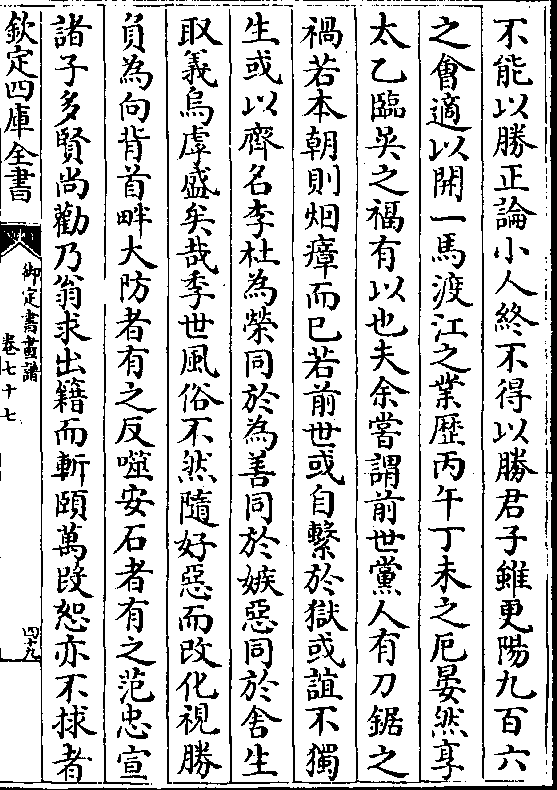 不能以勝正論小人終不得以勝君子雖更陽九百六
之會適以開一馬渡江之業歷丙午丁未之厄晏然享
太乙臨吳之福有以也夫余嘗謂前世黨人有刀鋸之
禍若本朝則烟瘴而已若前世或自繫於獄或誼不獨
生或以齊名李杜為榮同於為善同於嫉惡同於舍生
取義烏虖盛矣哉季世風俗不然隨好惡而改化視勝
負為向背首畔大防者有之反噬安石者有之范忠宣
諸子多賢尚勸乃翁求出籍而斬頤萬段恕亦不捄者
欽定四庫全書
御定書畫譜
卷七十七
四十九